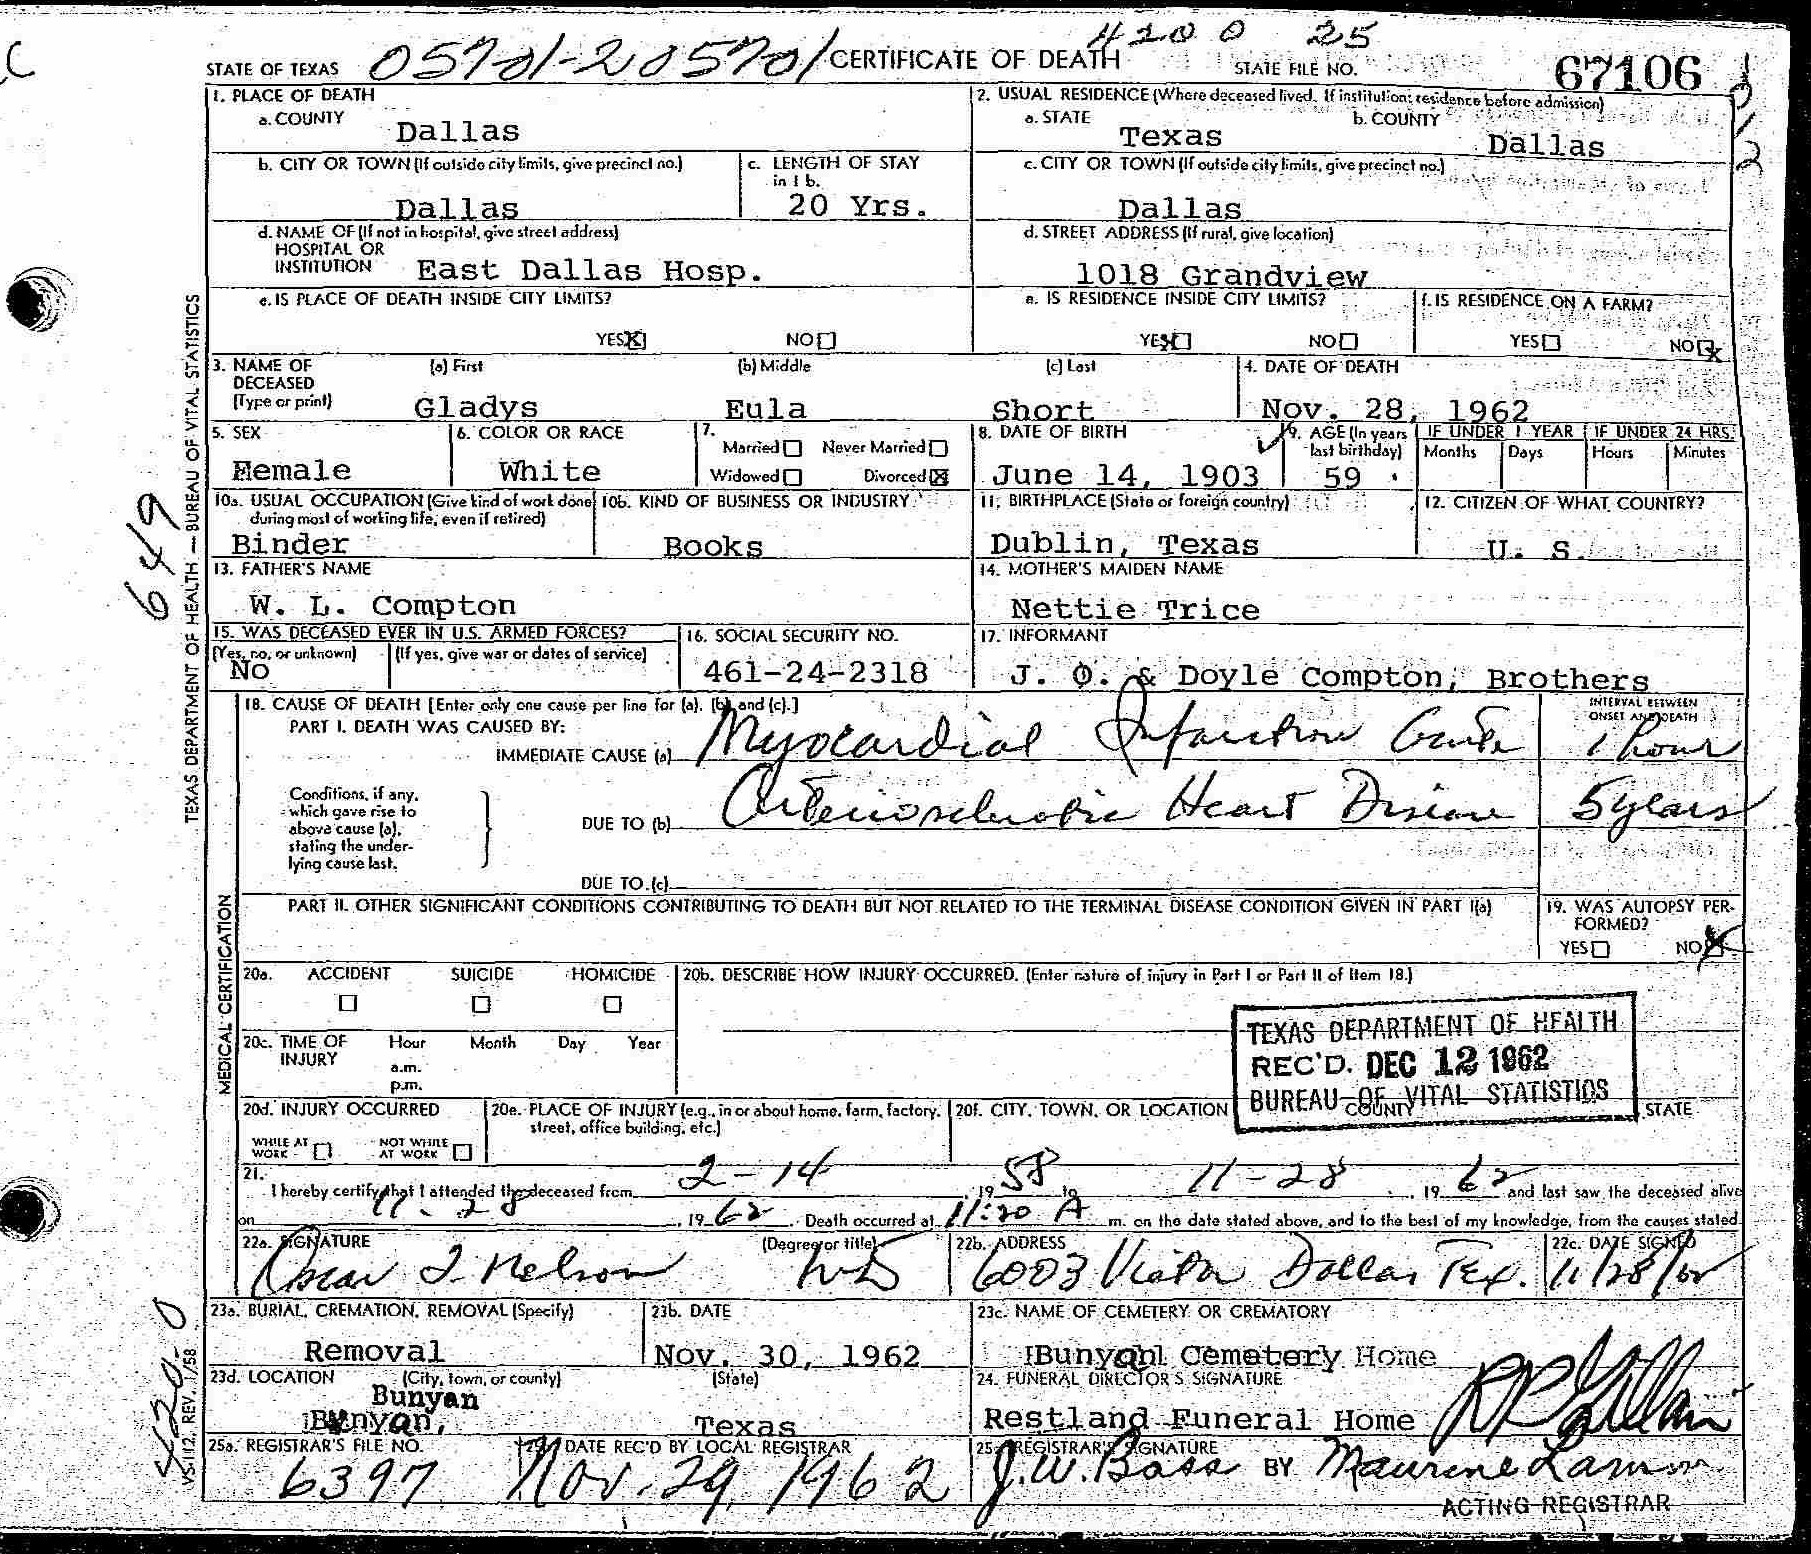 C
4200 25
STATE OF TEXAS 05701-205701 CERTIFICATE OF DEATH STATE FILE NO. 67106
1. PLACE OF DEATH
a. COUNTY
Dallas
2. USUAL RESIDENCE (Where deceased lived. If institution: residence before admission)
a. STATE b. COUNTY
Texas Dallas
b. CITY OR TOWN (If outside city limits, give precinct no.)
Dallas
c. LENGTH OF STAY
in 1 b.
20 Yrs.
c. CITY OR TOWN (If outside city limits, give precinct no.)
Dallas
d. NAME OF (If not in hospital, give street address)
HOSPITAL OR
INSTITUTION East Dallas Hosp.
d. STREET ADDRESS (If rural, give location)
1018 Grandview
e. IS PLACE OF DEATH INSIDE CITY LIMITS?
YES X NO
e. IS RESIDENCE INSIDE CITY LIMITS?
YES X NO
f. IS RESIDENCE ON A FARM?
YES NO X
3. NAME OF
DECEASED
(Type or print)
(a) First (b) Middle (c) Last
Gladys Eula Short
4. DATE OF DEATH
Nov. 28, 1962
5. SEX
Female
6. COLOR OR RACE
White
7.
Married Never Married
Widowed Divorced X
8. DATE OF BIRTH
June 14, 1903
9. AGE (In years
last birthday)
59
IF UNDER 1 YEAR IF UNDER 24 HRS.
Months Days Hours Minutes
10a. USUAL OCCUPATION (Give kind of work done
during most of working life, even if retired)
Binder
10b. KIND OF BUSINESS OR INDUSTRY
Books
11. BIRTHPLACE (State or foreign country)
Dublin, Texas
12. CITIZEN OF WHAT COUNTRY?
U. S.
13. FATHER'S NAME
W. L. Compton
14. MOTHER'S MAIDEN NAME
Nettie Trice
15. WAS DECEASED EVER IN U.S. ARMED FORCES?
(Yes, no, or unknown) (If yes, give war or dates of service)
No
16. SOCIAL SECURITY NO.
461-24-2318
17. INFORMANT
J. O. & Doyle Compton, Brothers
18. CAUSE OF DEATH [Enter only one cause per line for (a), (b), and (c).]
PART I. DEATH WAS CAUSED BY:
INTERVAL BETWEEN
ONSET AND DEATH
IMMEDIATE CAUSE (a) Myocardial Infarction Acute 1 hour
Conditions, if any,
which gave rise to
above cause (a),
stating the under-
lying cause last.
DUE TO (b) Arteriosclerotic Heart Disease 5 years
DUE TO (c)
PART II. OTHER SIGNIFICANT CONDITIONS CONTRIBUTING TO DEATH BUT NOT RELATED TO THE TERMINAL DISEASE CONDITION GIVEN IN PART I(a)
19. WAS AUTOPSY PER-
FORMED?
YES NO X
20a. ACCIDENT SUICIDE HOMICIDE
20b. DESCRIBE HOW INJURY OCCURRED. (Enter nature of injury in Part I or Part II of Item 18.)
20c. TIME OF
INJURY
Hour Month Day Year
a.m.
p.m.
TEXAS DEPARTMENT OF HEALTH
REC'D. DEC 12 1962
BUREAU OF VITAL STATISTICS
20d. INJURY OCCURRED
WHILE AT
WORK
NOT WHILE
AT WORK
20e. PLACE OF INJURY (e.g., in or about home, farm, factory,
street, office building, etc.)
20f. CITY, TOWN, OR LOCATION COUNTY STATE
21.
I hereby certify that I attended the deceased from 2-14 1958 to 11-28, 1962 and last saw the deceased alive
on 11-28, 1962. Death occurred at 11:20 A m. on the date stated above, and to the best of my knowledge, from the causes stated.
22a. SIGNATURE (Degree or title)
Oscar I. Nelson MD
22b. ADDRESS
6003 Victor Dallas Tex.
22c. DATE SIGNED
11/28/62
23a. BURIAL, CREMATION, REMOVAL (Specify)
Removal
23b. DATE
Nov. 30, 1962
23c. NAME OF CEMETERY OR CREMATORY
Bunyan Cemetery Home
23d. LOCATION (City, town, or county) (State)
Bunyan
Bunyan, Texas
24. FUNERAL DIRECTOR'S SIGNATURE
Restland Funeral Home
25a. REGISTRAR'S FILE NO.
6397
25b. DATE REC'D BY LOCAL REGISTRAR
Nov. 29, 1962
25c. REGISTRAR'S SIGNATURE
J.W. Bass BY Maurine Lamm
ACTING REGISTRAR
TEXAS DEPARTMENT OF HEALTH — BUREAU OF VITAL STATISTICS
649
MEDICAL CERTIFICATION
420-0
VS-112, REV. 1/58